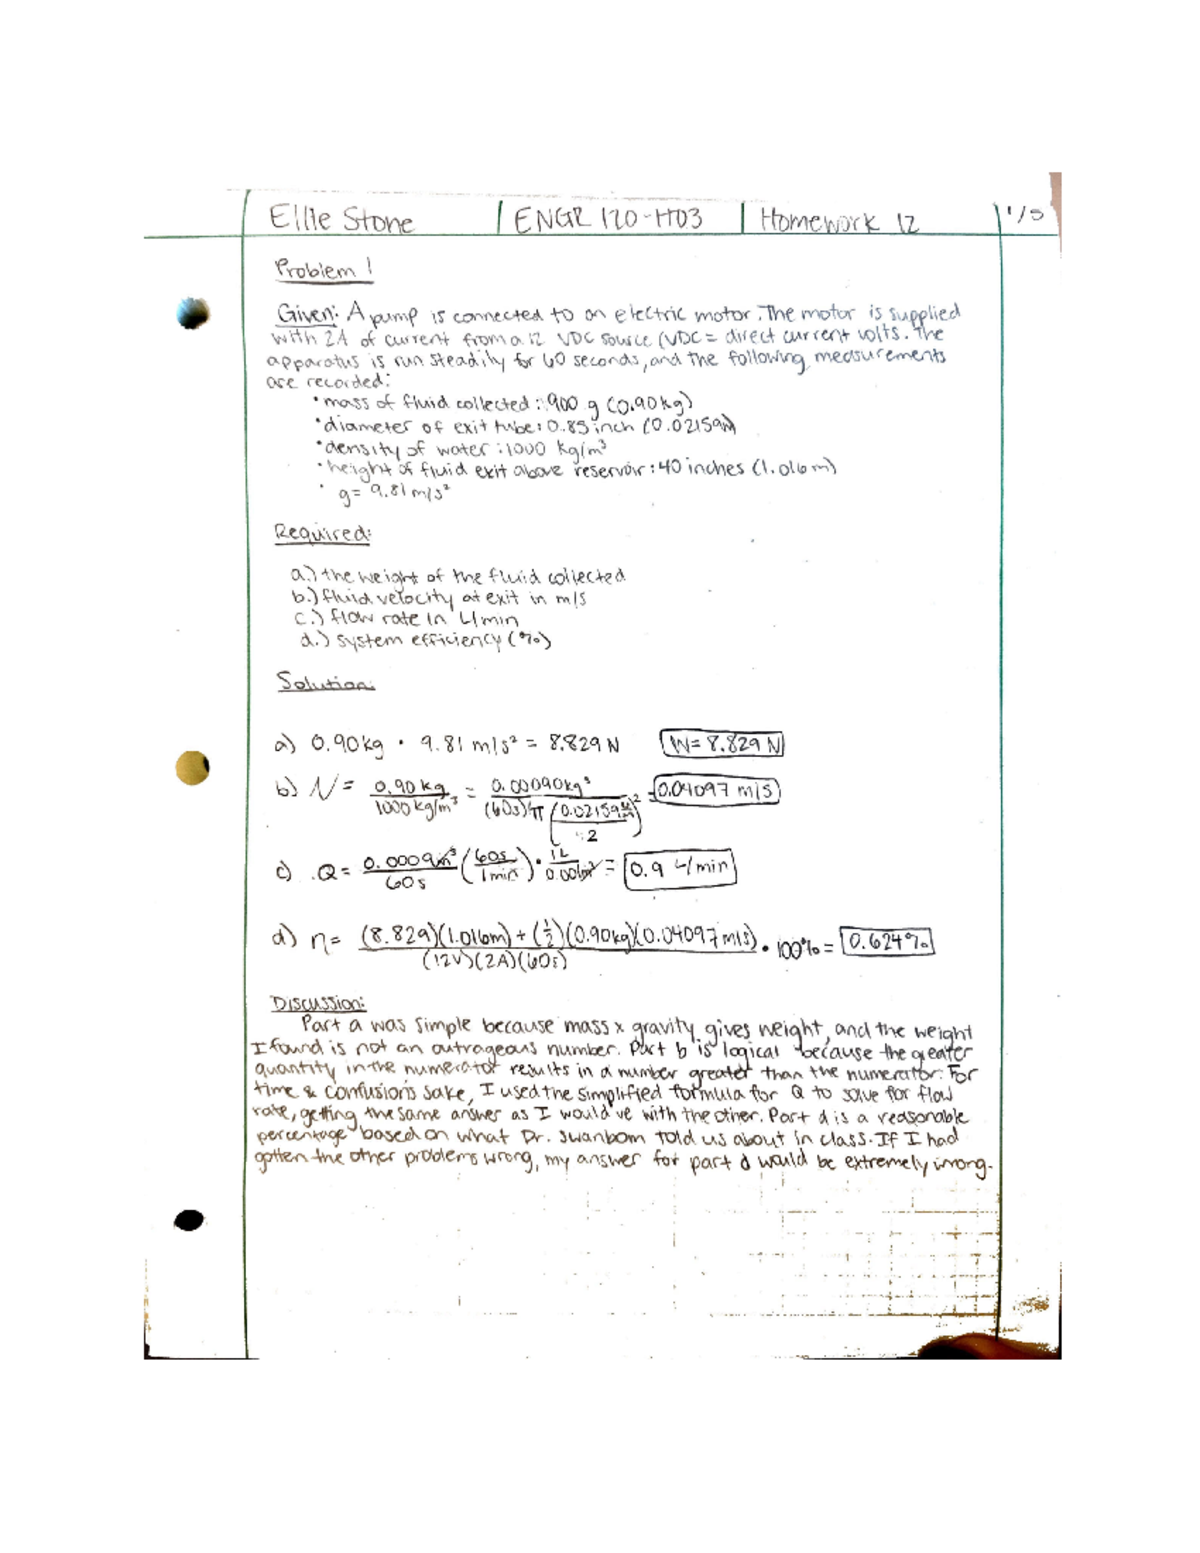 Ellie Stone | ENGR 120-H03 | Homework 12 | 1/5
Problem 1
Given: A pump is connected to an electric motor. The motor is supplied
with 2A of current from a 12 VDC source (VDC = direct current volts. The
apparatus is run steadily for 60 seconds, and the following measurements
are recorded:
• mass of fluid collected: 900 g (0.90kg)
• diameter of exit tube: 0.85 inch (0.02159m)
• density of water: 1000 kg/m³
• height of fluid exit above reservoir: 40 inches (1.016m)
• g = 9.81 m/s²
Required:
a.) the weight of the fluid collected
b.) fluid velocity at exit in m/s
c.) flow rate in L/min
d.) system efficiency (%)
Solution:
a) 0.90kg · 9.81 m/s² = 8.829 N W = 8.829 N
b) V = 0.90 kg / 1000 kg/m³ = 0.00090kg³ / (60s)π(0.02159/2)² = 0.04097 m/s
c) Q = 0.0009m³ / 60s (60s / 1min) · 1L / 0.001m³ = 0.9 L/min
d) η = (8.829)(1.016m) + (1/2)(0.90kg)(0.04097m/s) / (12V)(2A)(60s) · 100% = 0.624%
Discussion:
Part a was simple because mass x gravity gives weight, and the weight
I found is not an outrageous number. Part b is logical because the greater
quantity in the numerator results in a number greater than the numerator. For
time & confusion's sake, I used the simplified formula for Q to solve for flow
rate, getting the same answer as I would've with the other. Part d is a reasonable
percentage based on what Dr. Swanbom told us about in class. If I had
gotten the other problems wrong, my answer for part d would be extremely wrong.